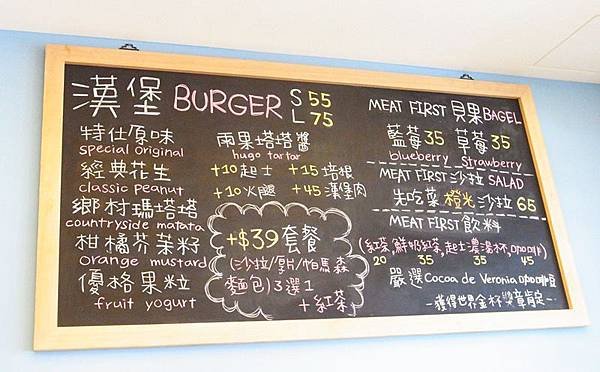 漢堡 BURGER S 55
L 75
特仕原味
special original
經典花生
classic peanut
鄉村瑪塔塔
countryside matata
柑橘芥茉籽
orange mustard
優格果粒
fruit yogurt
兩果塔塔醬
hugo tartar
+10起士 +15培根
+10火腿 +45漢堡肉
+$39套餐
(沙拉/厚片/帕馬森
麵包)3選1
+紅茶
MEAT FIRST 貝果BAGEL
藍莓35 草莓35
blueberry strawberry
MEAT FIRST 沙拉 SALAD
先吃菜 橙光沙拉 65
MEAT FIRST 飲料
(紅茶,鮮奶紅茶,起士濃湯杯,咖啡)
20 35 35 45
嚴選Cocoa de Veronia咖啡豆
-獲得世界金杯獎章肯定-